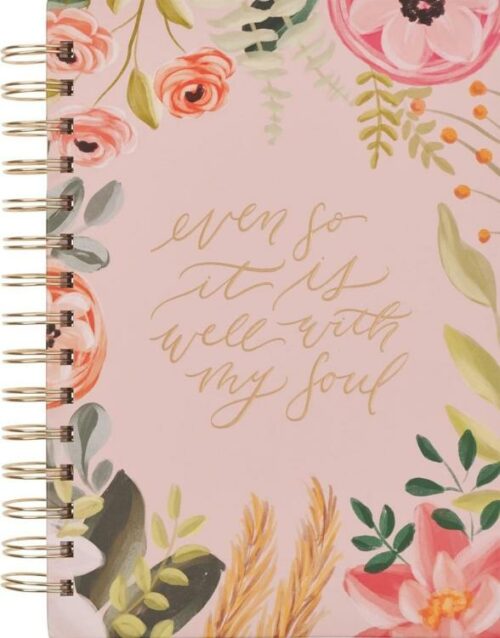 even so
it is
well with
my soul